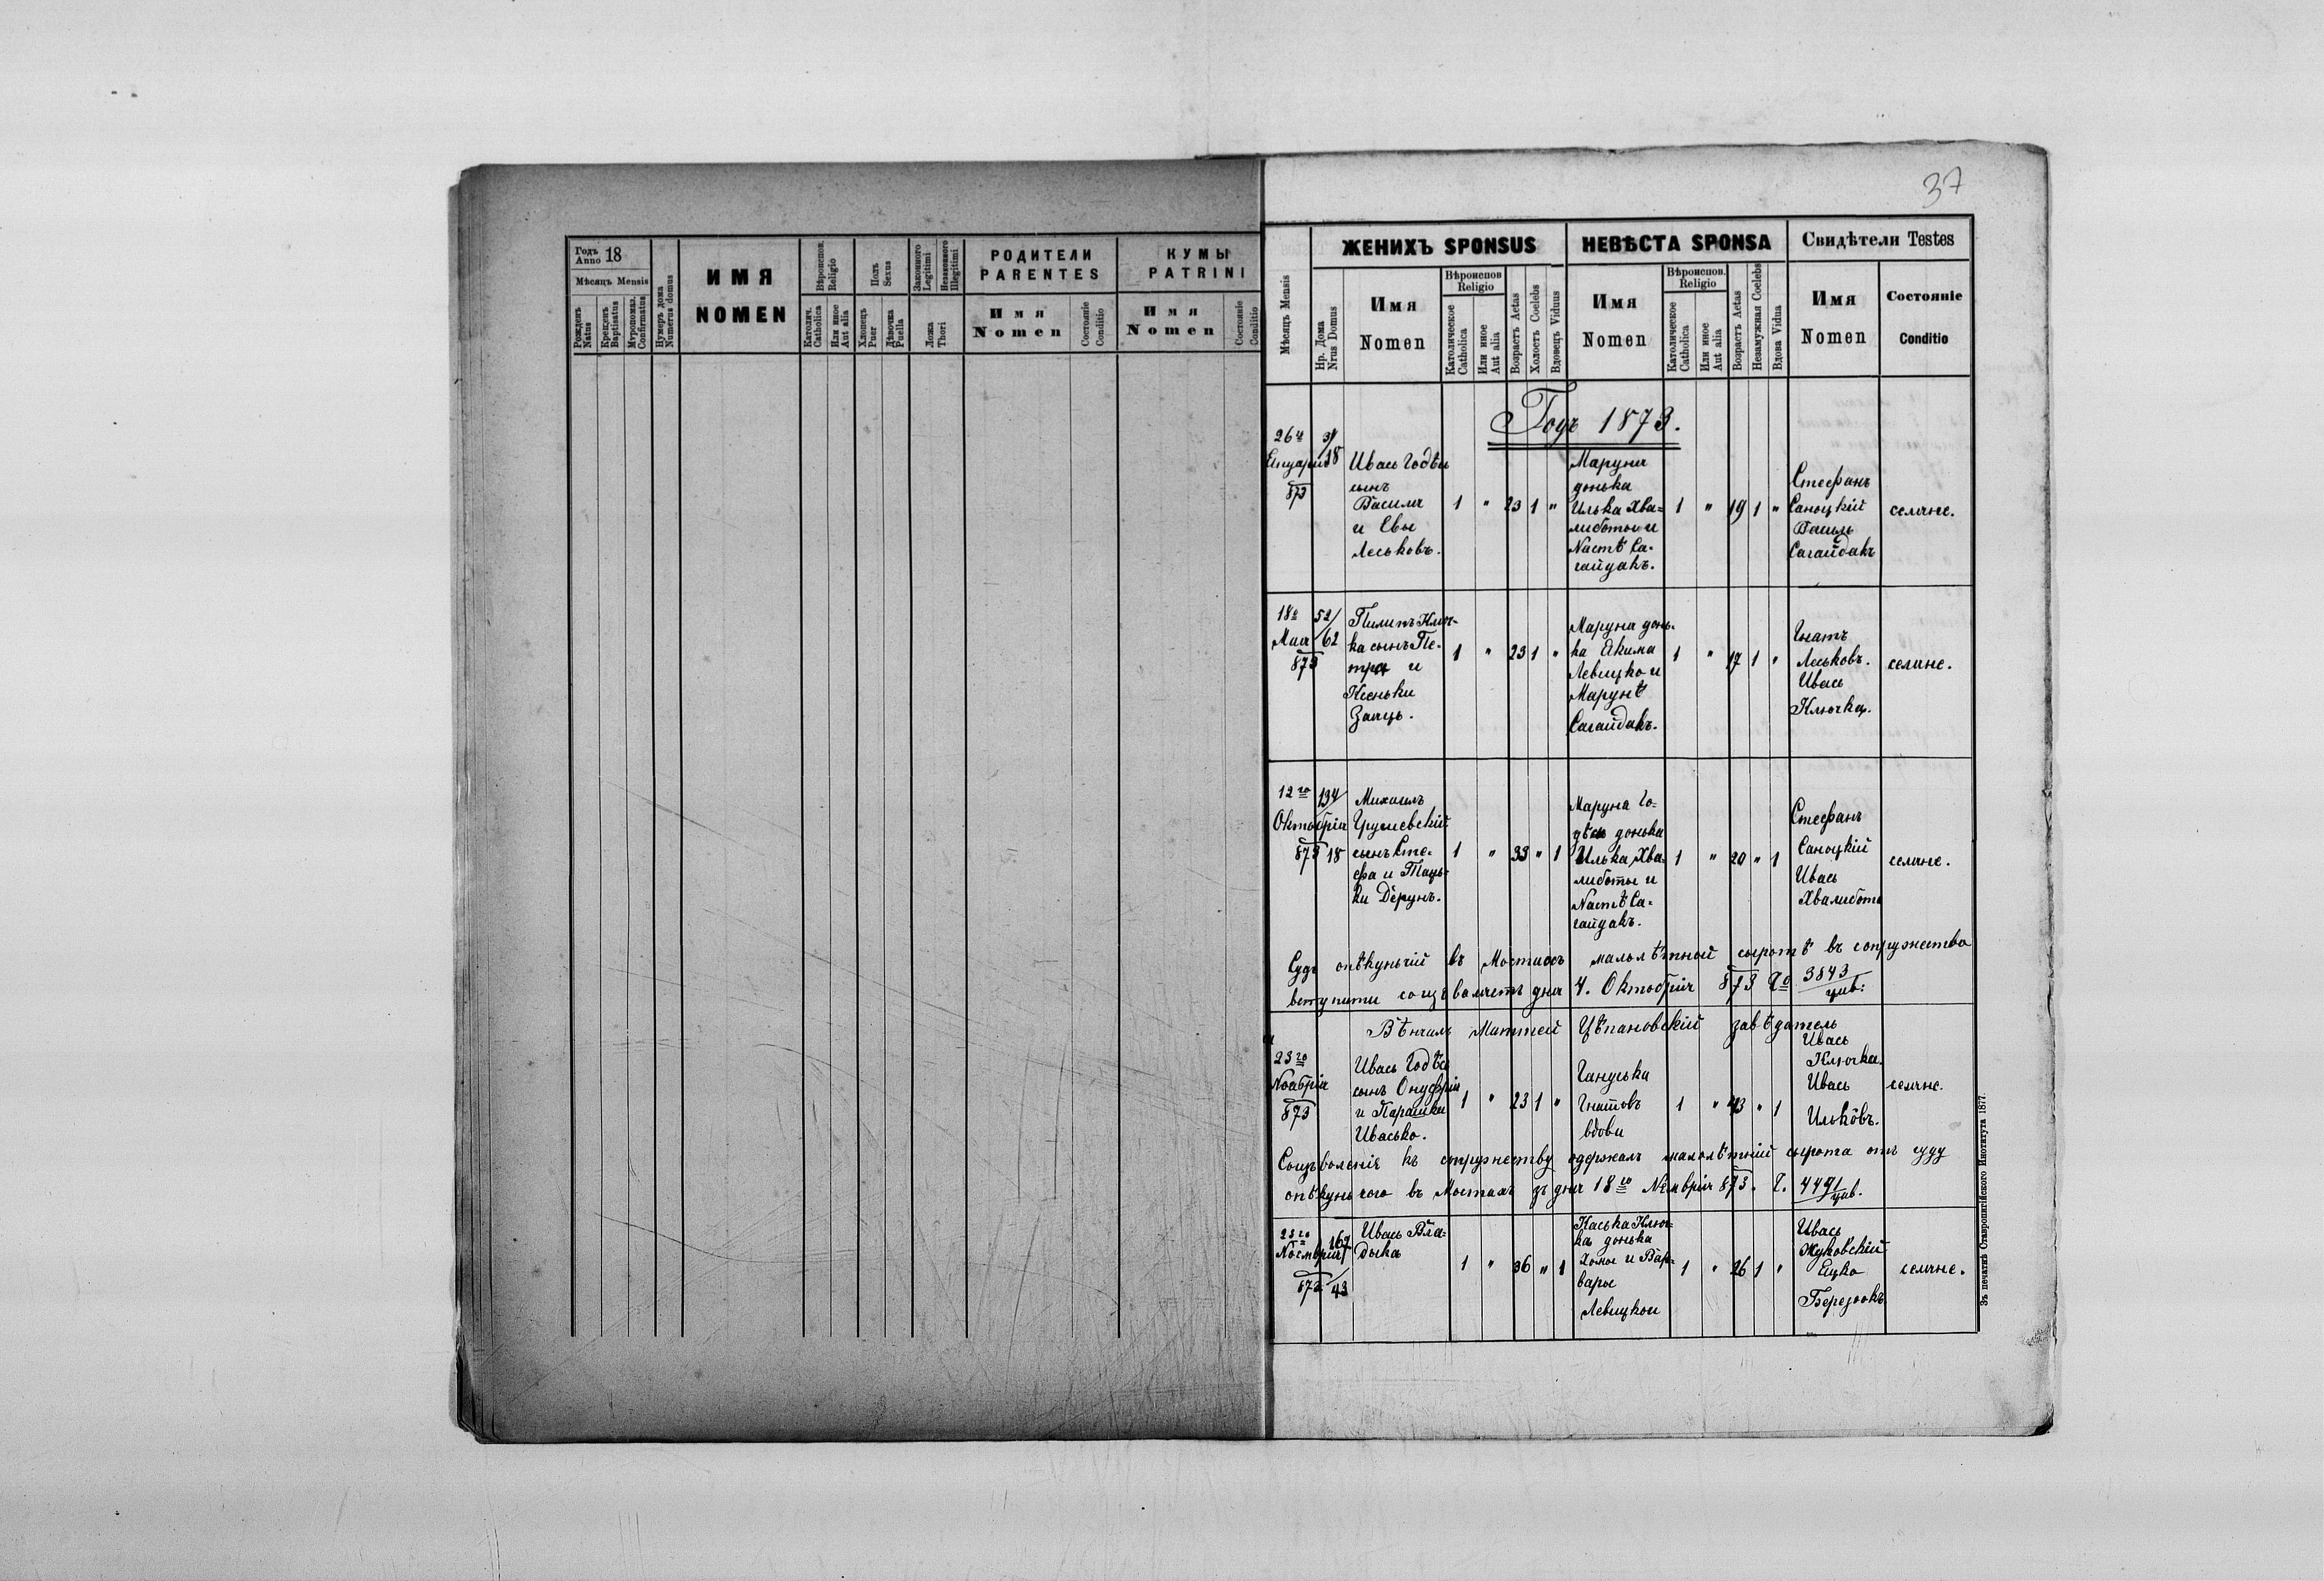 37
Годъ 18
Anno
Мѣсяцъ Mensis
Рожденъ Natus
Крещенъ Baptisatus
Мѵропомаз. Confirmatus
Нумеръ дома Numerus domus
ИМЯ
NOMEN
Вѣроиспов. Religio
Католич. Catholica
Или иное Aut alia
Полъ Sexus
Хлопецъ Puer
Дѣвочка Puella
Законного Legitimi
Незаконного Illegitimi
Ложа Thori
РОДИТЕЛИ
PARENTES
Имя
Nomen
Состояніе Conditio
КУМЫ
PATRINI
Имя
Nomen
Состояніе Conditio
Мѣсяцъ Mensis
ЖЕНИХЪ SPONSUS
Нр. Дома Nrus Domus
Имя
Nomen
Вѣроиспов Religio
Католическое Catholica
Или иное Aut alia
Возрастъ Aetas
Холостъ Coelebs
Вдовецъ Viduus
НЕВѢСТА SPONSA
Имя
Nomen
Вѣроиспов. Religio
Католическое Catholica
Или иное Aut alia
Возрастъ Aetas
Незамужная Coelebs
Вдова Vidua
Свидѣтели Testes
Имя
Nomen
Состояніе
Conditio
Годъ 1873.
26
18
873
Ивась Годѣн
сынъ
Василя
и Евы
Леськовъ.
1 " 23 1 "
Маруня
донька
Илька Хва=
либоты и
Настѣ Са=
гайдакъ.
1 " 19 1 "
Стефанъ
Саноцкій
Василь
Сагайдакъ
селяне.
18
Мая
873
52/
62
Пилипъ Ключ-
ка сынъ Пе-
тра и
Ксеньки
Заяць.
1 " 23 1 "
Маруня донь-
ка Якима
Левицко и
Марунѣ
Сагайдакъ.
1 " 17 1 "
Гнатъ
Леськовъ.
Ивась
Ключка.
селяне.
12го
Октобрія
873
134/
18
Михаилъ
Грушевскій
сынъ Сте-
фа и Таць-
ки Дерунъ.
1 " 33 " 1
Маруня Го-
дѣн донька
Илька Хва-
либоты и
Настѣ Са-
гайдакъ.
1 " 20 " 1
Стефанъ
Саноцкій
Ивась
Хвалибота
селяне.
Судъ опѣкунчій въ Мостахъ малолѣтной сыротѣ въ сопружество
вступити соизволяетъ дня 4. Октобрія 873 3843/цив:
Вѣнчалъ Маттей Цѣпановскій завѣдатель
23го
Ноября
873
Ивась Годѣн
сынъ Онуфрія
и Парашки
Ивасько.
1 " 23 1 "
Гануська
Гнатовъ
вдова
1 " 43 " 1
Ивась
Ключка.
Ивась
Ильковъ.
селяне.
Соизволеніе къ супружеству одержалъ малолѣтній сырота отъ суду
опѣкунького въ Мостахъ зъ дня 18го Ноемврія 873. Ч. 4491/цив.
23го
Ноемврія
873
167
43
Ивась Вла-
дыка
1 " 36 " 1
Каська Ключ-
ка донька
Хомы и Вар-
вары
Левицкои
1 " 26 1 "
Ивась
Жуковскій
Ецко
Березюкъ
селяне.
Зъ печатнѣ Ставропигійского Института 1877.